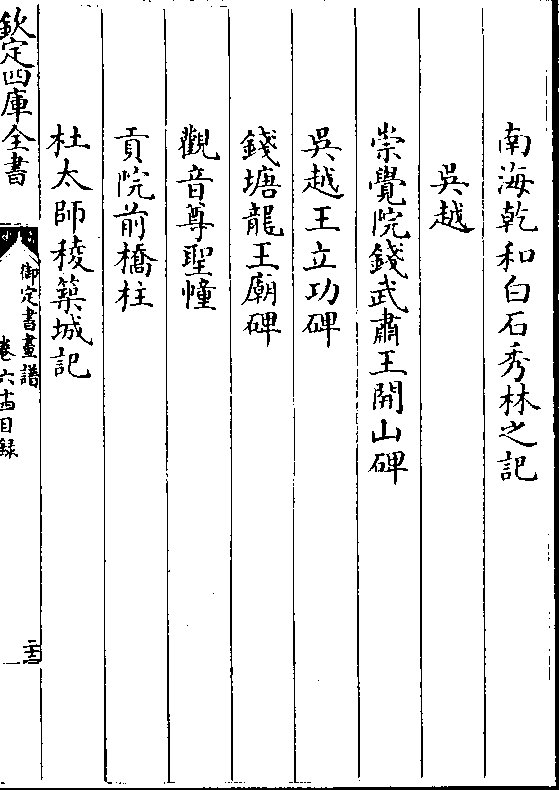 南海乾和白石秀林之記
吳越
崇覺院錢武肅王開山碑
吳越王立功碑
錢塘龍王廟碑
觀音尊聖幢
貢院前橋柱
杜太師稜築城記
欽定四庫全書
御定書畫譜
卷六十四目録
二十三